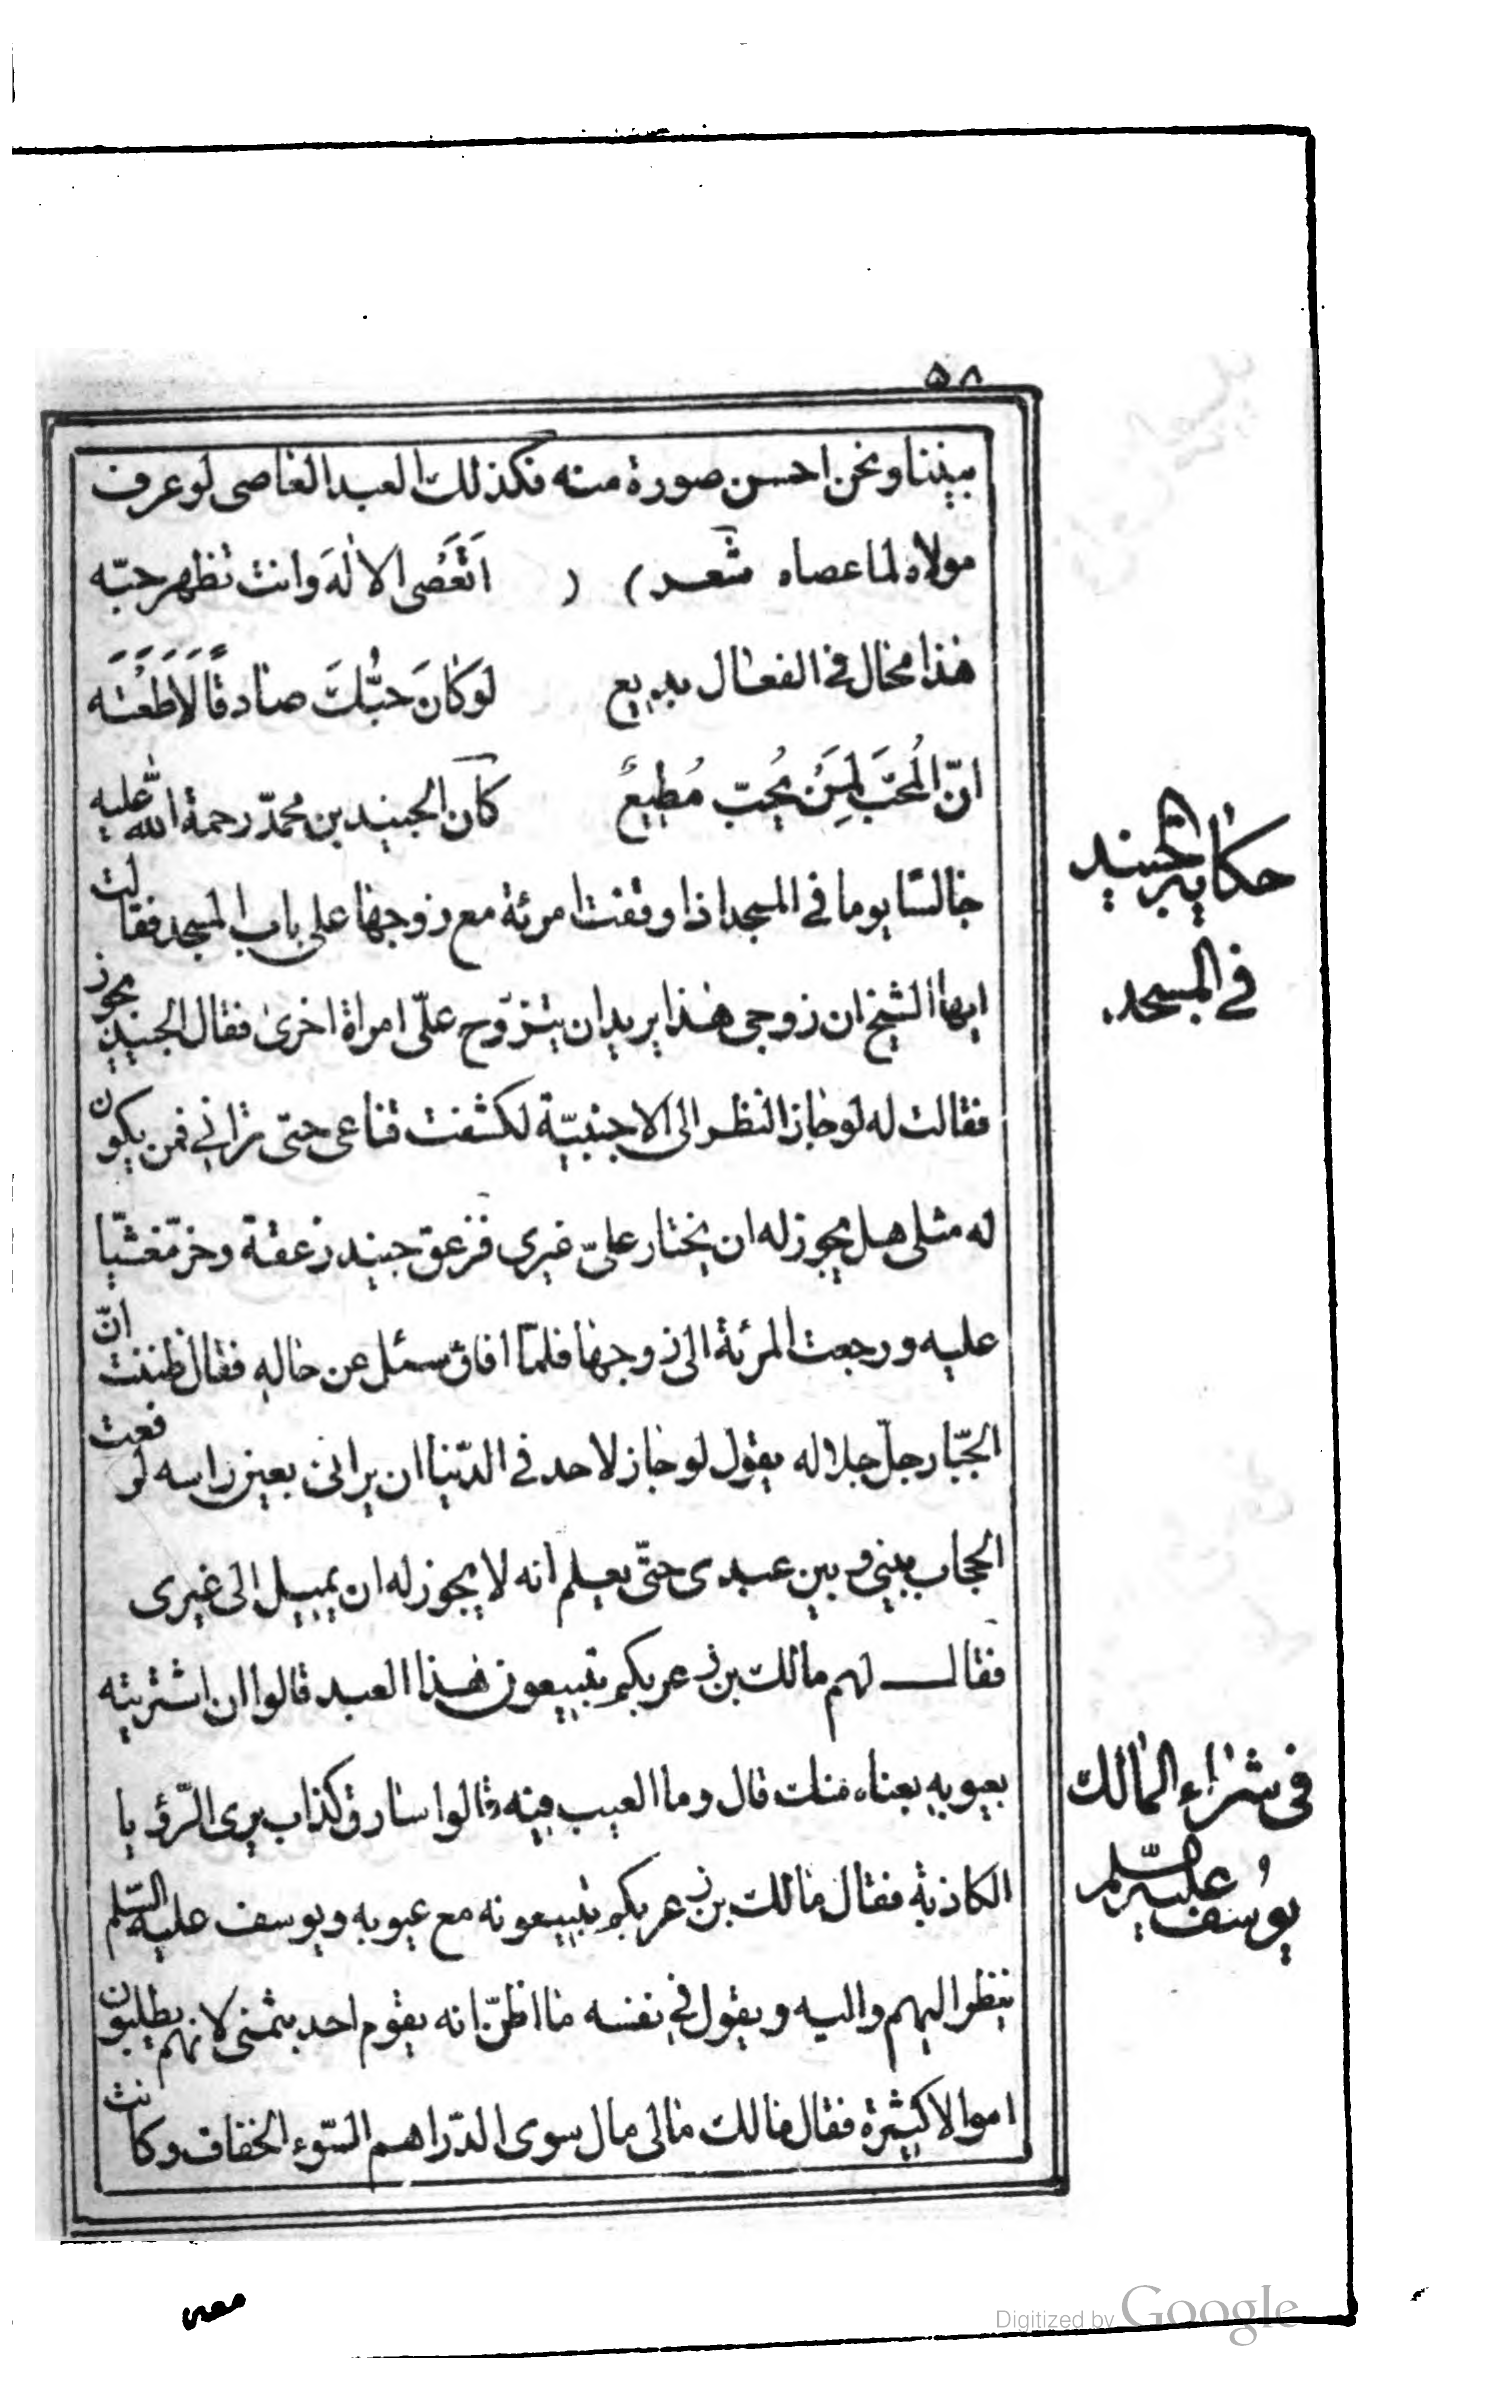 ۵۸
بيننا ونحن احسن صورة منه فكذلك العبد العاصى لو عرف
مولاه لما عصاه شعر ) ( اَتَعَصَى الالٰهَ وانت تظهر حبّه
هذا محال فى الفعال بديع لَو كَانَ حبُّكَ صادقًا لَاَطَعْتَه
انّ المُحَبَّ لِمَنْ يُحِبّ مُطِيعٌ كان الجنيد بن محمّد رحمة الله عليه
جالسًا يوما فى المسجد اذا وقفت امرئة مع زوجها على باب المسجد فقالت
ايها الشيخ ان زوجى هذا يريد ان يتزوّج علىّ امراة اخرى فقال الجنيد يجوز
فقالت له لو جاز النظر الى الاجنبيّة لكشفت قناعى حتى ترانى فمن يكون
له مثلى هل يجوز له ان يختار علىّ غيرى فزعق جنيد زعقة وخرّ مغشيّا
عليه ورجعت المرئة الى زوجها فلمّا افاق سئل عن حاله فقال ظننت انّ
الجبّار جلّ جلاله يقول لو جاز لاحد فى الدّنيا ان يرانى بعين راسه لرفعت
الحجاب بينى و بين عبدى حتّى يعلم انه لا يجوز له ان يميل الى غيرى
فقال لهم مالك بن زعر بكم تبيعون هذا العبد قالوا ان اشتريته
بعيوبه بعناه منك قال وما العيب فيه قالوا سارق كذاب يرى الرّؤيا
الكاذبة فقال مالك بن زعر بكم تبيعونه مع عيوبه ويوسف عليه السّلم
ينظر اليهم واليه ويقول فى نفسه ما اظنّ انه يقوم احد بثمنى لانهم يطلبون
اموالا كثيرة فقال مالك مالى مال سوى الدّراهم السّوء الخفاف وكانت
حكاية الجنيد
فى المسجد
فى شراء المالك
يوسف عليه السّلم
معى
Digitized by Google